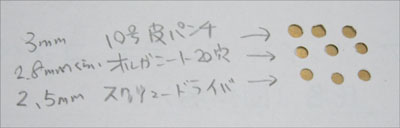 3mm 10号皮パンチ →
2.8mmくらい オルガニート20穴 →
2.5mm スクリュードライバ →